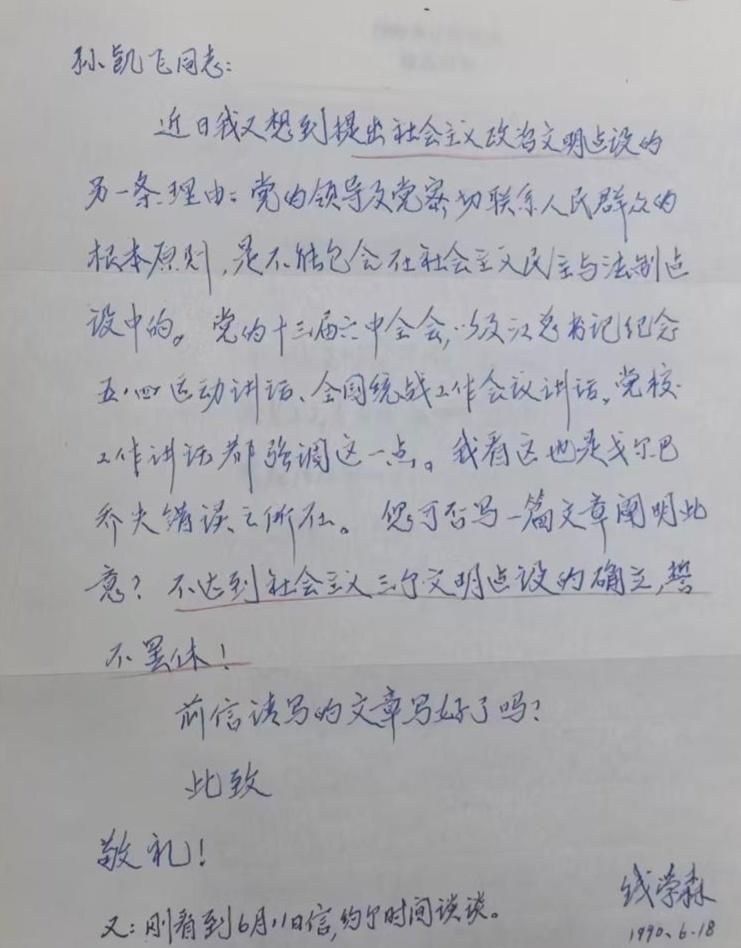 孙凯飞同志：
近日我又想到提出社会主义政治文明建设的
另一条理由：党的领导及党密切联系人民群众的
根本原则，是不能包含在社会主义民主与法制建
设中的。党的十三届六中全会，以及江总书记纪念
五·四运动讲话、全国统战工作会议讲话，党校
工作讲话都强调这一点。我看这也是戈尔巴
乔夫错误之所在。您可否写一篇文章阐明此
意？不达到社会主义三个文明建设的确立，誓
不罢休！
前信请写的文章写好了吗？
此致
敬礼！
钱学森
1990.6.18
又：刚看到6月11日信，约个时间谈谈。